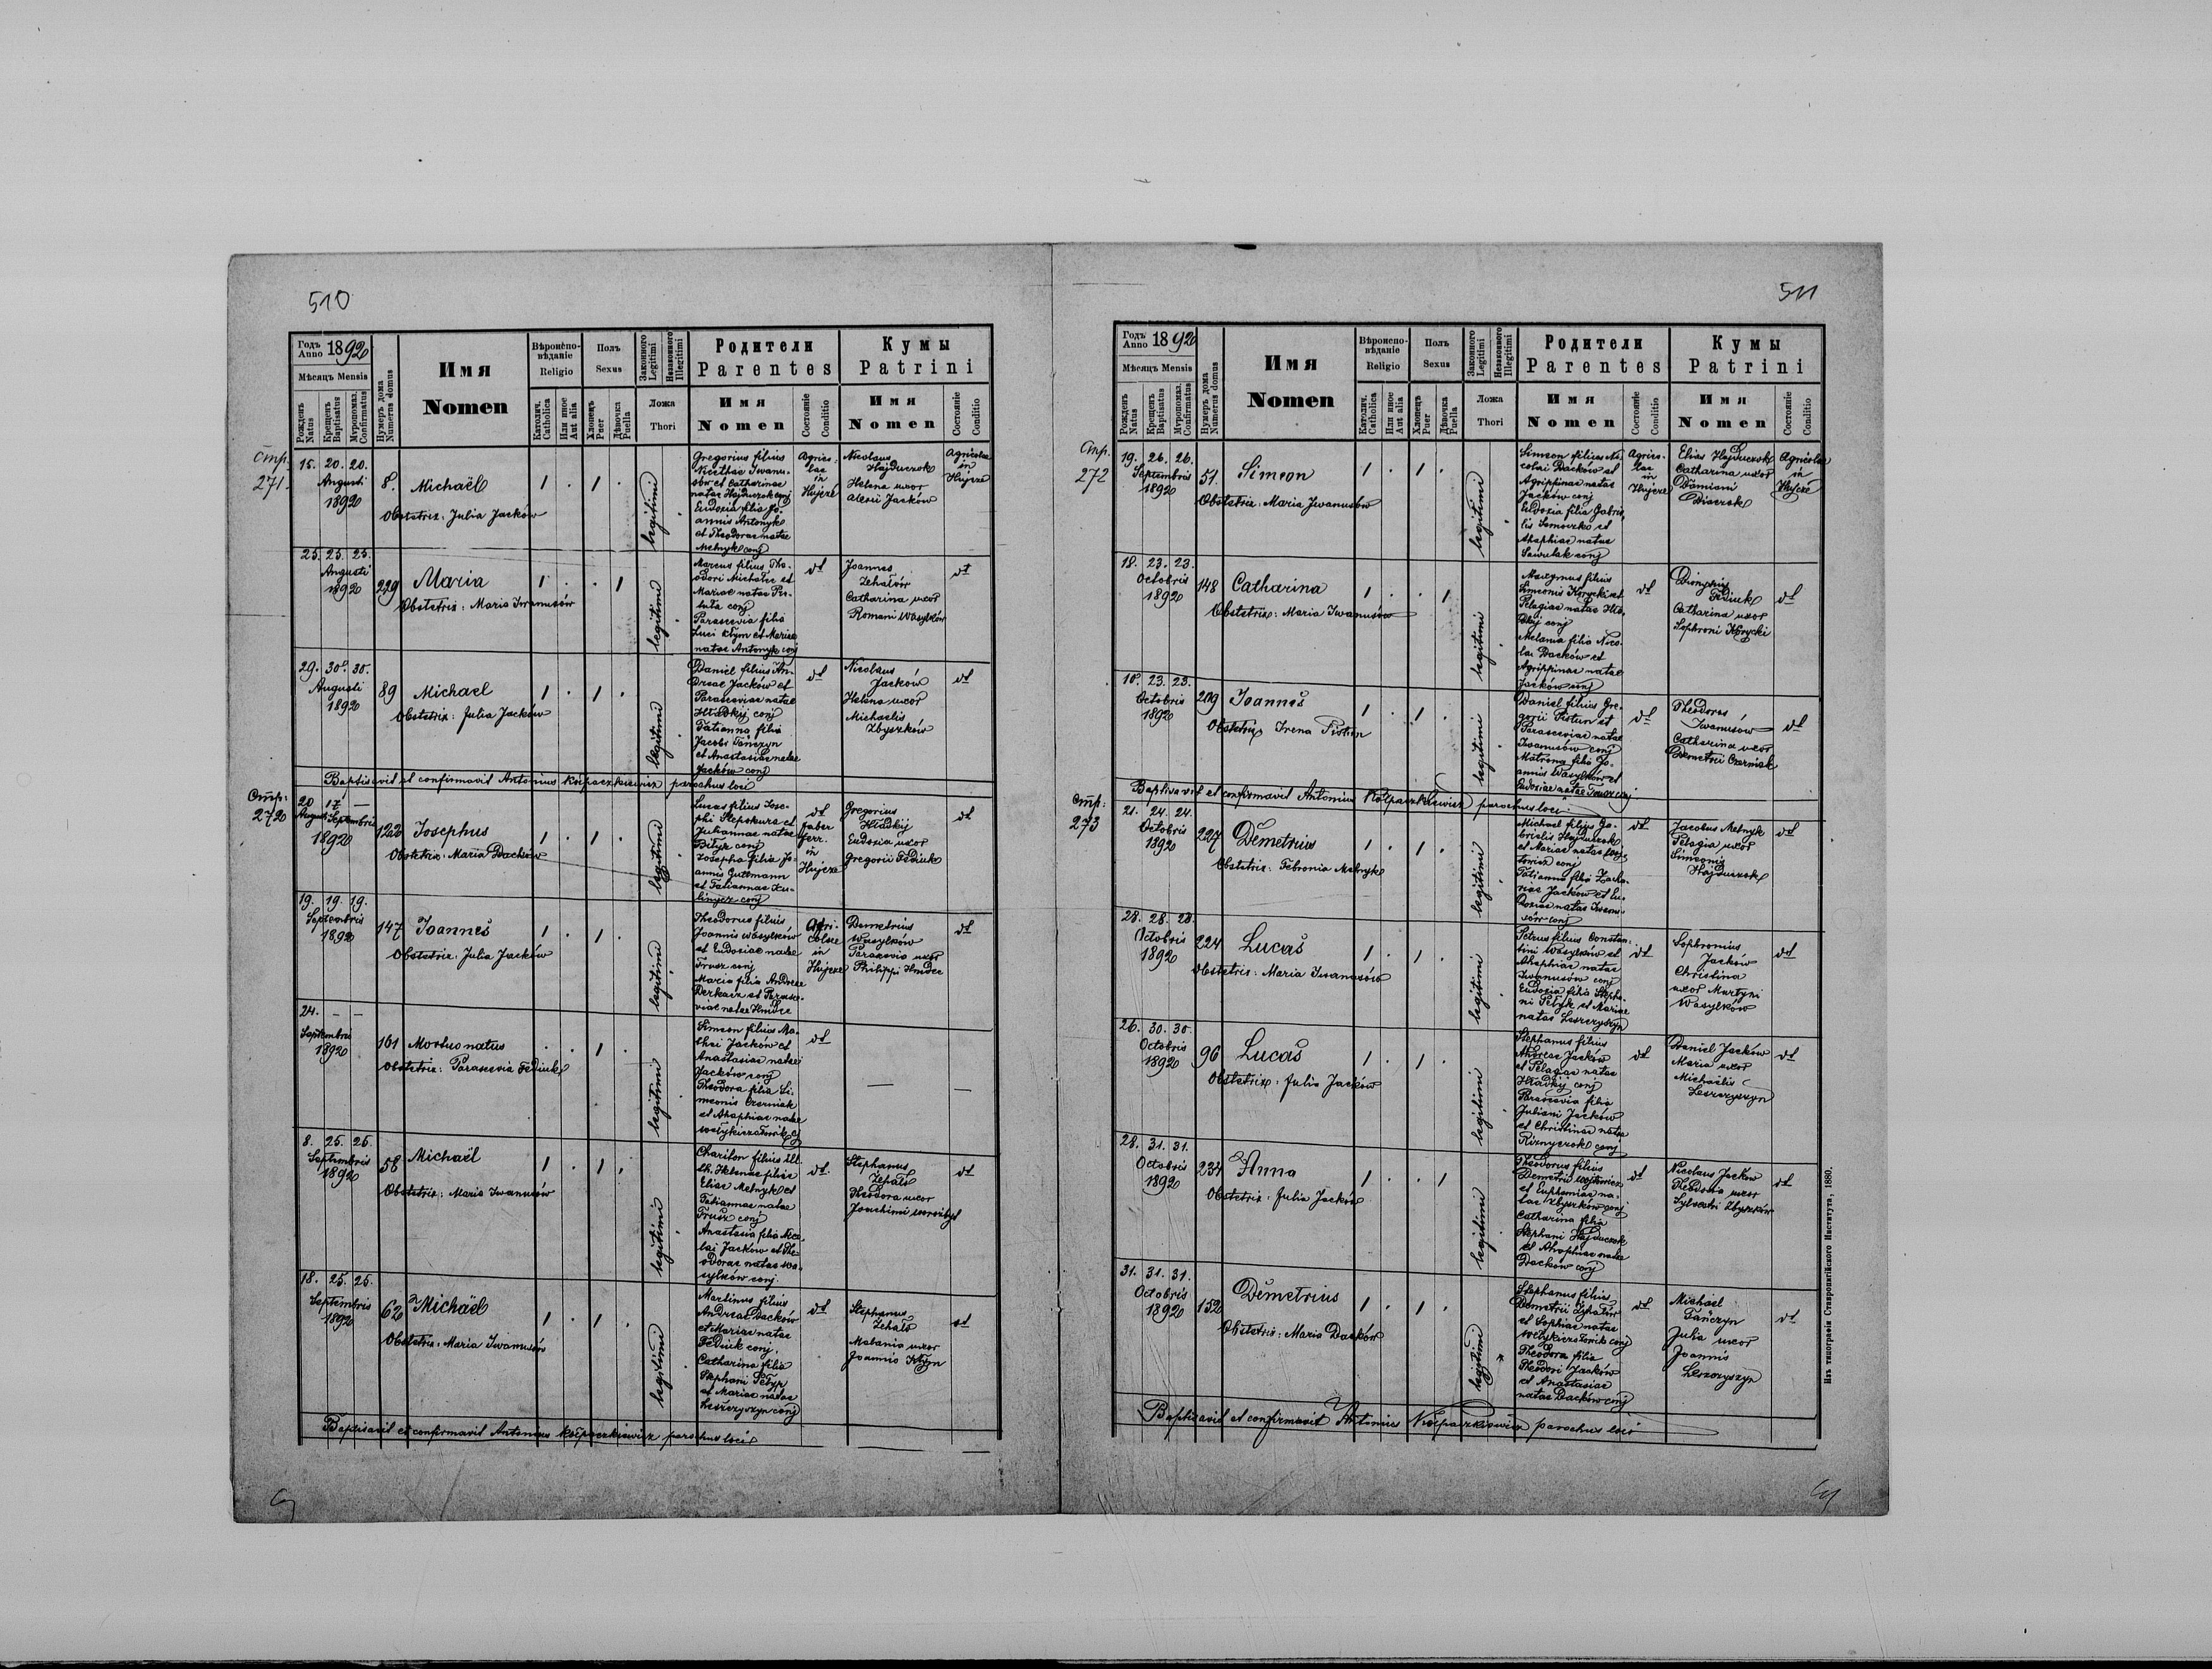 510
Годъ Anno 1892
Мѣсяцъ Mensis
Рожденъ Natus
Крещенъ Baptisatus
Мѵропомаз. Confirmatus
Нумеръ дома Numerus domus
Имя
Nomen
Вѣроиспо-
вѣданіе
Religio
Католич. Catholica
Или иное Aut alia
Полъ
Sexus
Хлопецъ Puer
Дѣвочка Puella
Законного Legitimi
Незаконного Illegitimi
Ложа
Thori
Родители
Parentes
Имя
Nomen
Состояніе Conditio
Кумы
Patrini
Имя
Nomen
Состояніе Conditio
Стр. 271.
15. 20. 20.
Augusti
1892
8.
Michaël
Obstetrix: Julia Jacków
1 . 1 .
legitimi
Gregorius filius
Nicethae Iwanu-
sów et Catharinae
natae Hajduczok conj
Eudoxia filia Jo-
annis Antonyk
et Theodorae natae
Melnyk conj
Agrico-
lae
in
Hujcze
Nicolaus
Hajduczok
Helena uxor
Alexii Jacków
Agricolae
in
Hujcze
25. 25. 25.
Augusti
1892
229
Maria
Obstetrix: Maria Iwanusów
1 . . 1
legitimi
Marcus filius The-
odori Michalec et
Mariae natae
conj
Parascevia filia
Luci Kłym et Mariae
natae Antonyk conj
dt
Joannes
Zehałów
Catharina uxor
Romani Wasylków
dt
29. 30. 30.
Augusti
1892
89
Michael
Obstetrix: Julia Jacków
1 . 1 .
legitimi
Daniel filius An-
dreae Jacków et
Parasceviae natae
Hładkij conj
Tatianna filia
Jacobi Tańczyn
et Anastasiae natae
Jacków conj
dt
Nicolaus
Jacków
Helena uxor
Michaelis
Zbyszków
dt
Baptisavit et confirmavit Antonius Kołpaczkiewicz parochus loci
Стр: 272
20 17 —
Augusti Septembris
1892
122
Josephus
Obstetrix: Maria Dacków
1 . 1 .
legitimi
Lucas filius Jose-
phi Slepokura et
Juliannae natae
Biłyk conj
Josepha filia Jo-
annis Guttmann
et Tatiannae
conj
dt
faber
ferr.
in
Hujcze
Gregorius
Hładkij
Eudoxia uxor
Gregorii Fediuk
dt
19. 19. 19.
Septembris
1892
147
Joannes
Obstetrix: Julia Jacków
1 . 1 .
legitimi
Theodorus filius
Joannis Wasylków
et Eudoxiae natae
Trusz conj
Maria filia Andreae
Derkacz et Parasce-
viae natae Hnidec
Agri-
colae
in
Hujcze
Demetrius
Wasylków
Paraxevia uxor
Philippi Hnidec
dt
24. — —
Septembris
1892
161
Mortuo natus
Obstetrix: Parascevia Fediuk
. . 1 .
legitimi
Simeon filius Ma-
thei Jacków et
Anastasiae natae
Jacków conj
Theodora filia Si-
meonis Czerniak
et Ahaphiae natae
Wełykiczałowik cj
dt
—
—
8. 25. 25.
Septembris
1892
58
Michaël
Obstetrix: Maria Iwanusów
1 . 1 .
legitimi
Chariton filius ill.
th. Helenae filiae
Eliae Melnyk et
Tatiannae natae
Trusz conj
Anastasia filia Nico-
lai Jacków et The-
odorae natae Wa-
sylków conj.
dt.
Stephanus
Zehało
Theodora uxor
Joachimi Worobyl
dt
18. 25. 25.
Septembris
1892
62
Michaël
Obstetrix: Maria Iwanusów
1 . 1 .
legitimi
Martinus filius
Andreae Dacków
et Mariae natae
Fediuk conj.
Catharina filia
Stephani Petyp
et Mariae natae
Leszczyszyn conj
dt
Stephanus
Zehało
Malania uxor
Joannis Kłym
dt
Baptisavit et confirmavit Antonius Kołpaczkiewicz parochus loci
511
Годъ Anno 1892
Мѣсяцъ Mensis
Рожденъ Natus
Крещенъ Baptisatus
Мѵропомаз. Confirmatus
Нумеръ дома Numerus domus
Имя
Nomen
Вѣроиспо-
вѣданіе
Religio
Католич. Catholica
Или иное Aut alia
Полъ
Sexus
Хлопецъ Puer
Дѣвочка Puella
Законного Legitimi
Незаконного Illegitimi
Ложа
Thori
Родители
Parentes
Имя
Nomen
Состояніе Conditio
Кумы
Patrini
Имя
Nomen
Состояніе Conditio
Стр. 272
19. 26. 26.
Septembris
1892
51.
Simeon
Obstetrix: Maria Iwanusów
1 . 1 .
legitimi
Simeon filius Ni-
colai Dacków et
Agrippinae natae
Jacków conj
Eudoxia filia Gabrie-
lis Semoczko et
Ahaphiae natae
Sawulak conj
Agrico-
lae
in
Hujcze
Elias Hajduczok
Catharina uxor
Damiani
Diaczok
Agricolae
in
Hujcze
18. 23. 23.
Octobris
1892
148
Catharina
Obstetrix: Maria Iwanusów
1 . . 1
legitimi
filius
Simeonis Korycki et
Pelagiae natae Hła-
dkij conj
Melania filia Nico-
lai Dacków et
Agrippinae natae
Jacków conj
dt
Dionysius
Fediuk
Catharina uxor
Sophroni Korycki
dt
18. 23. 23.
Octobris
1892
209
Joannes
Obstetrix Irena Pistun
1 . 1 .
legitimi
Daniel filius Gre-
gorii Pistun et
Parasceviae natae
Iwanusów conj
Matrona filia Jo-
annis Wasylków et
Eudoxiae natae Trusz conj
dt
Theodorus
Iwanusów
Catharina uxor
Demetrii Czerniak
dt
Baptisavit et confirmavit Antonius Kołpaczkiewicz parochus loci
Стр: 273
21. 24. 24.
Octobris
1892
227
Demetrius
Obstetrix: Febronia Melnyk
1 . 1 .
legitimi
Michael filius Ga-
brielis Hajduczok
et Mariae natae Woj-
towicz conj
Tatianna filia Zacha-
riae Jacków et Eu-
doxiae natae Iwanu-
sów conj
dt
Jacobus Melnyk
Pelagia uxor
Simeonis
Hajduczok
dt
28. 28. 28.
Octobris
1892
224
Lucas
Obstetrix: Maria Iwanusów
1 . 1 .
legitimi
Petrus filius Constan-
tini Wasylków et
Ahaphiae natae
Iwanusów conj
Eudoxia filia Stepha-
ni Petyk et Mariae
natae Leszczyszyn
dt
Sophronius
Jacków
Christina
uxor Martyni
Wasylków
dt
26. 30. 30.
Octobris
1892
96
Lucas
Obstetrix: Julia Jacków
1 . 1 .
legitimi
Stephanus filius
Andreae Jacków
et Pelagae natae
Hładkij conj
Parascevia filia
Juliani Jacków
et Christinae natae
Riznyczok conj
dt
Daniel Jacków
Maria uxor
Michaelis
Leszczyszyn
dt
28. 31. 31.
Octobris
1892
234
Anna
Obstetrix: Julia Jacków
1 . . 1
legitimi
Theodorus filius
Demetrii Wojtowicz
et Euphemiae na-
tae Zbyszków conj
Catharina filia
Stephani Hajduczok
et Ahaphiae natae
Dacków conj
dt
Nicolaus Jacków
Theodosia uxor
Sylvestri Zbyszków
dt
31. 31. 31.
Octobris
1892
152
Demetrius
Obstetrix: Maria Dacków
1 . 1 .
legitimi
Stephanus filius
Demetrii Zehałów
et Sophiae natae
Wełykiczałowik conj
Theodora filia
Theodori Jacków
et Anastasiae
natae Dacków conj
dt
Michael
Tańczyn
Julia uxor
Joannis
Leszczyszyn
dt.
Baptisavit et confirmavit Antonius Kołpaczkiewicz parochus loci
Изъ типографіи Ставропигійского Института, 1880.